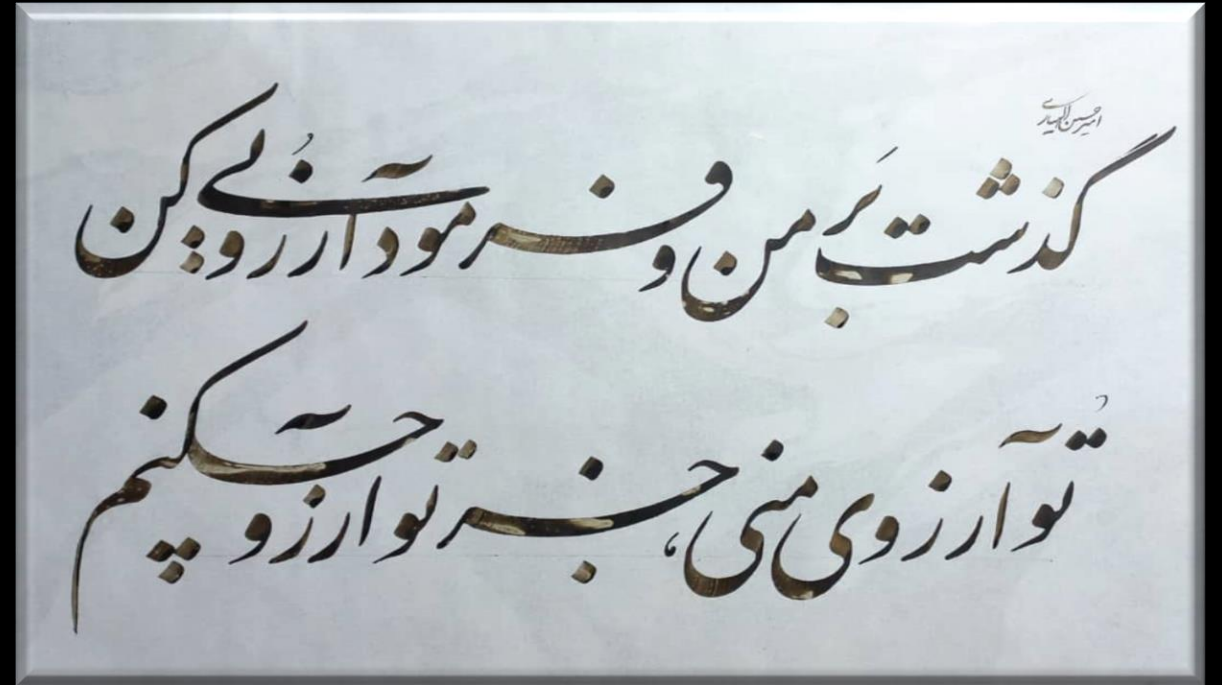 امیرحسین الهیاری
گذشت بَر من و فرمود آرزویی کن
تُو آرزوی منی، جز تو آرزو چکنم